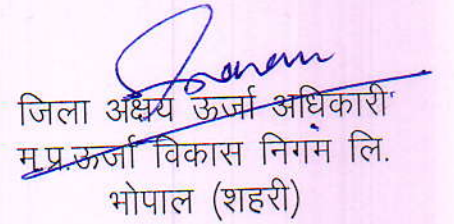 जिला अक्षय ऊर्जा अधिकारी
म.प्र.ऊर्जा विकास निगम लि.
भोपाल (शहरी)